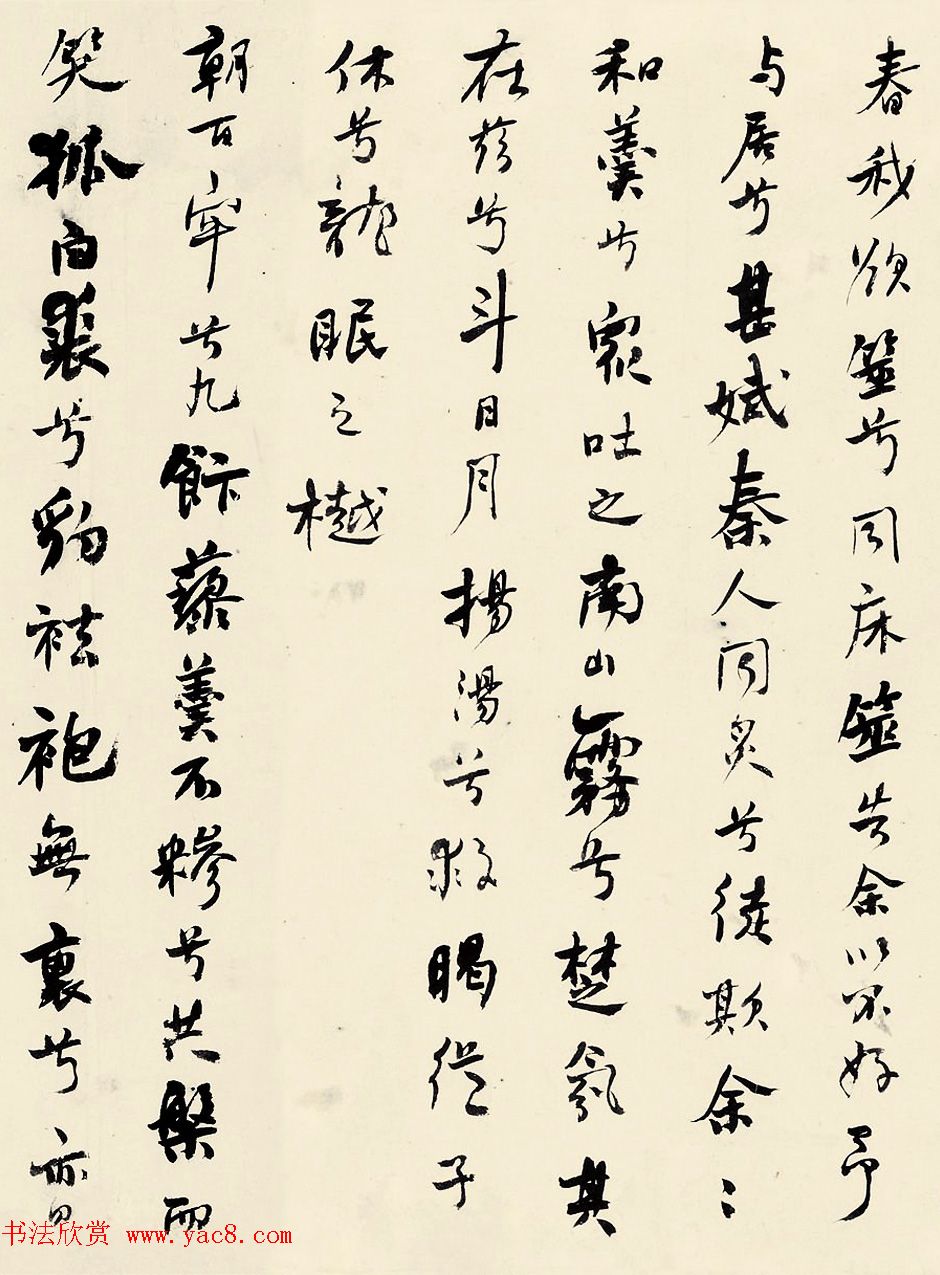 春我欲筮兮同床筮告余以不好予
与居兮甚娬秦人同炙兮徒欺余〻
和羹兮众吐之南山霧兮楚氛其
在茲兮斗日月揚湯兮救暍從子
休兮龍眠之樾
朝百牢兮九飰藜羹不糝兮共槃而
笑狐白裘兮豹袪袍無裏兮亦
书法欣赏 www.yac8.com